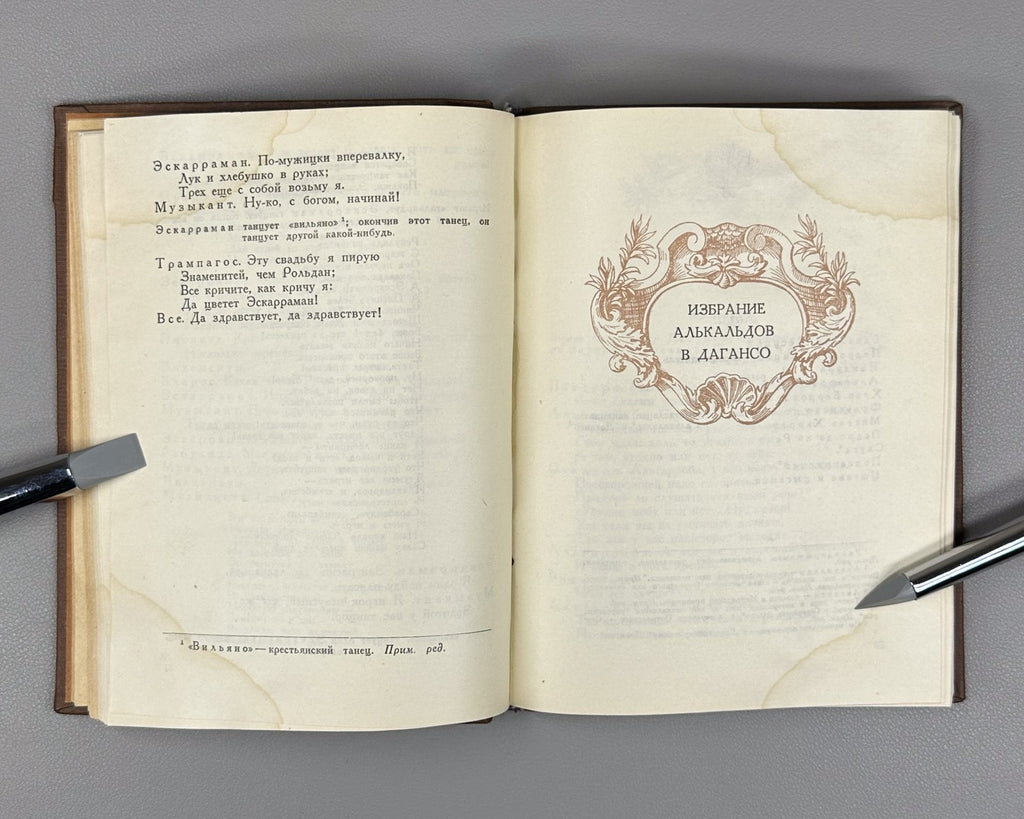 Эскарраман. По-мужицки вперевалку,
Лук и хлебушко в руках;
Трех еще с собой возьму я.
Музыкант. Ну-ко, с богом, начинай!
Эскарраман танцует «вильяно»¹; окончив этот танец, он
танцует другой какой-нибудь.
Трампагос. Эту свадьбу я пирую
Знаменитей, чем Рольдан;
Все кричите, как кричу я:
Да цветет Эскарраман!
Все. Да здравствует, да здравствует!
¹ «Вильяно» — крестьянский танец. Прим. ред.
ИЗБРАНИЕ
АЛЬКАЛЬДОВ
В ДАГАНСО